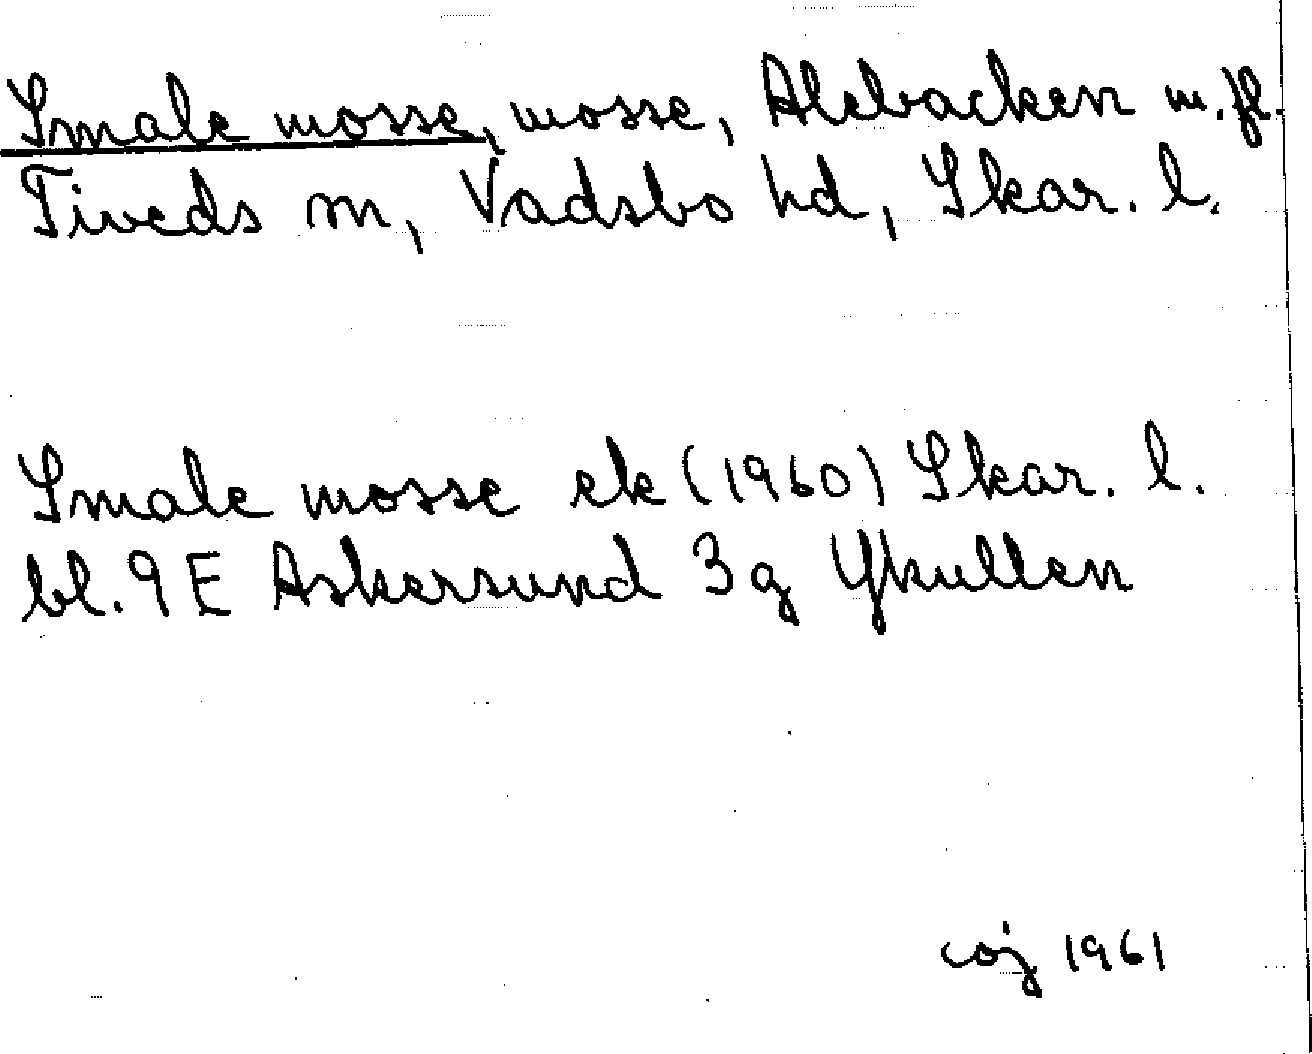 Smale mosse, mosse, Alebacken m.fl.
Tiveds sn, Vadsbo hd, Skar. l.
Smale mosse ek (1960) Skar. l.
bl. 9 E Askersund 3 g Ykullen
coj 1961